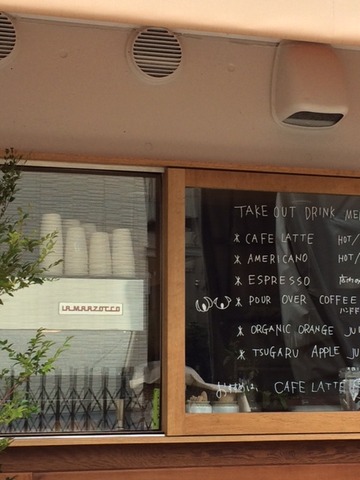 LA MARZOCCO
TAKE OUT DRINK ME
* CAFE LATTE HOT/
* AMERICANO HOT/
* ESPRESSO
* POUR OVER COFFEE
* ORGANIC ORANGE JU
* TSUGARU APPLE JU
CAFE LATTE